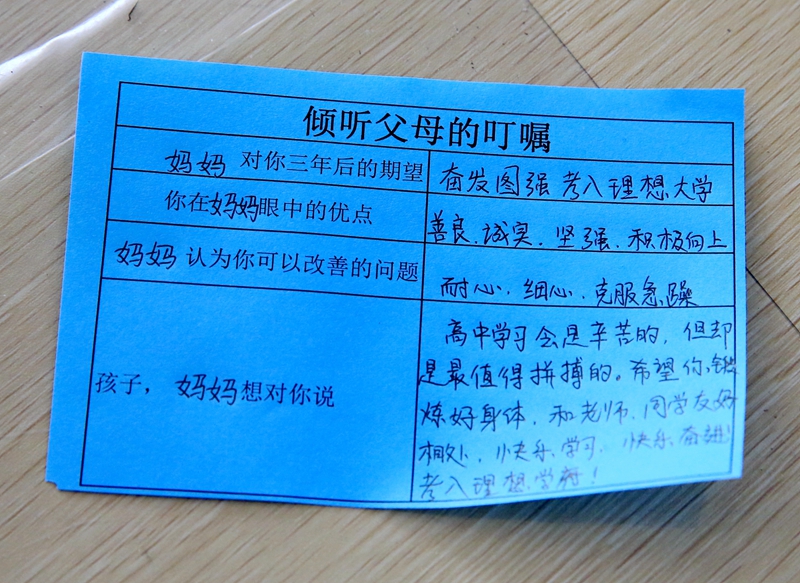 倾听父母的叮嘱
妈妈 对你三年后的期望
奋发图强 考入理想大学
你在妈妈眼中的优点
善良、诚实、坚强、积极向上
妈妈 认为你可以改善的问题
耐心、细心、克服急躁
孩子，妈妈想对你说
高中学习会是辛苦的，但却
是最值得拼搏的。希望你锻
炼好身体，和老师、同学友好
相处，快乐学习，快乐奋进！
考入理想学府！